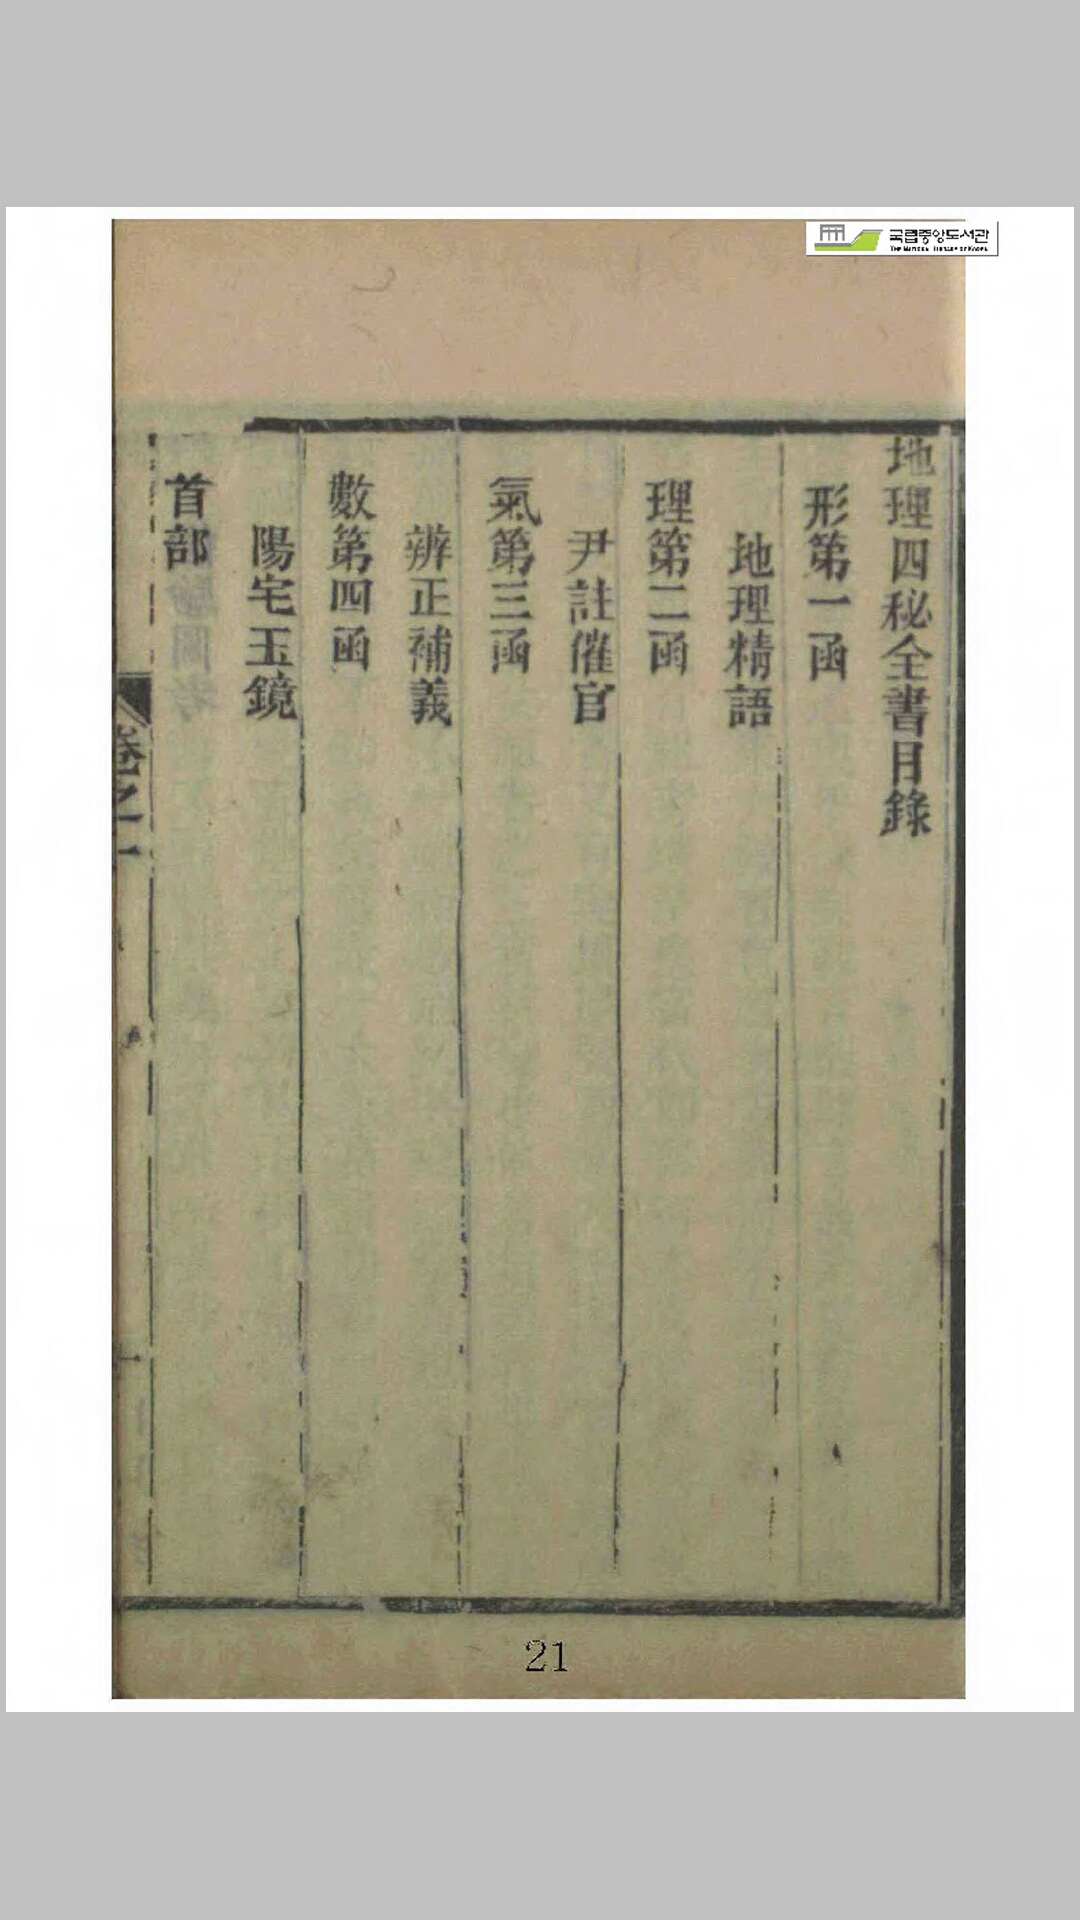 국립중앙도서관
THE NATIONAL LIBRARY OF KOREA
地理四秘全書目錄
形第一函
地理精語
理第二函
尹註催官
氣第三函
辨正補義
數第四函
陽宅玉鏡
首部
卷之一
一
21